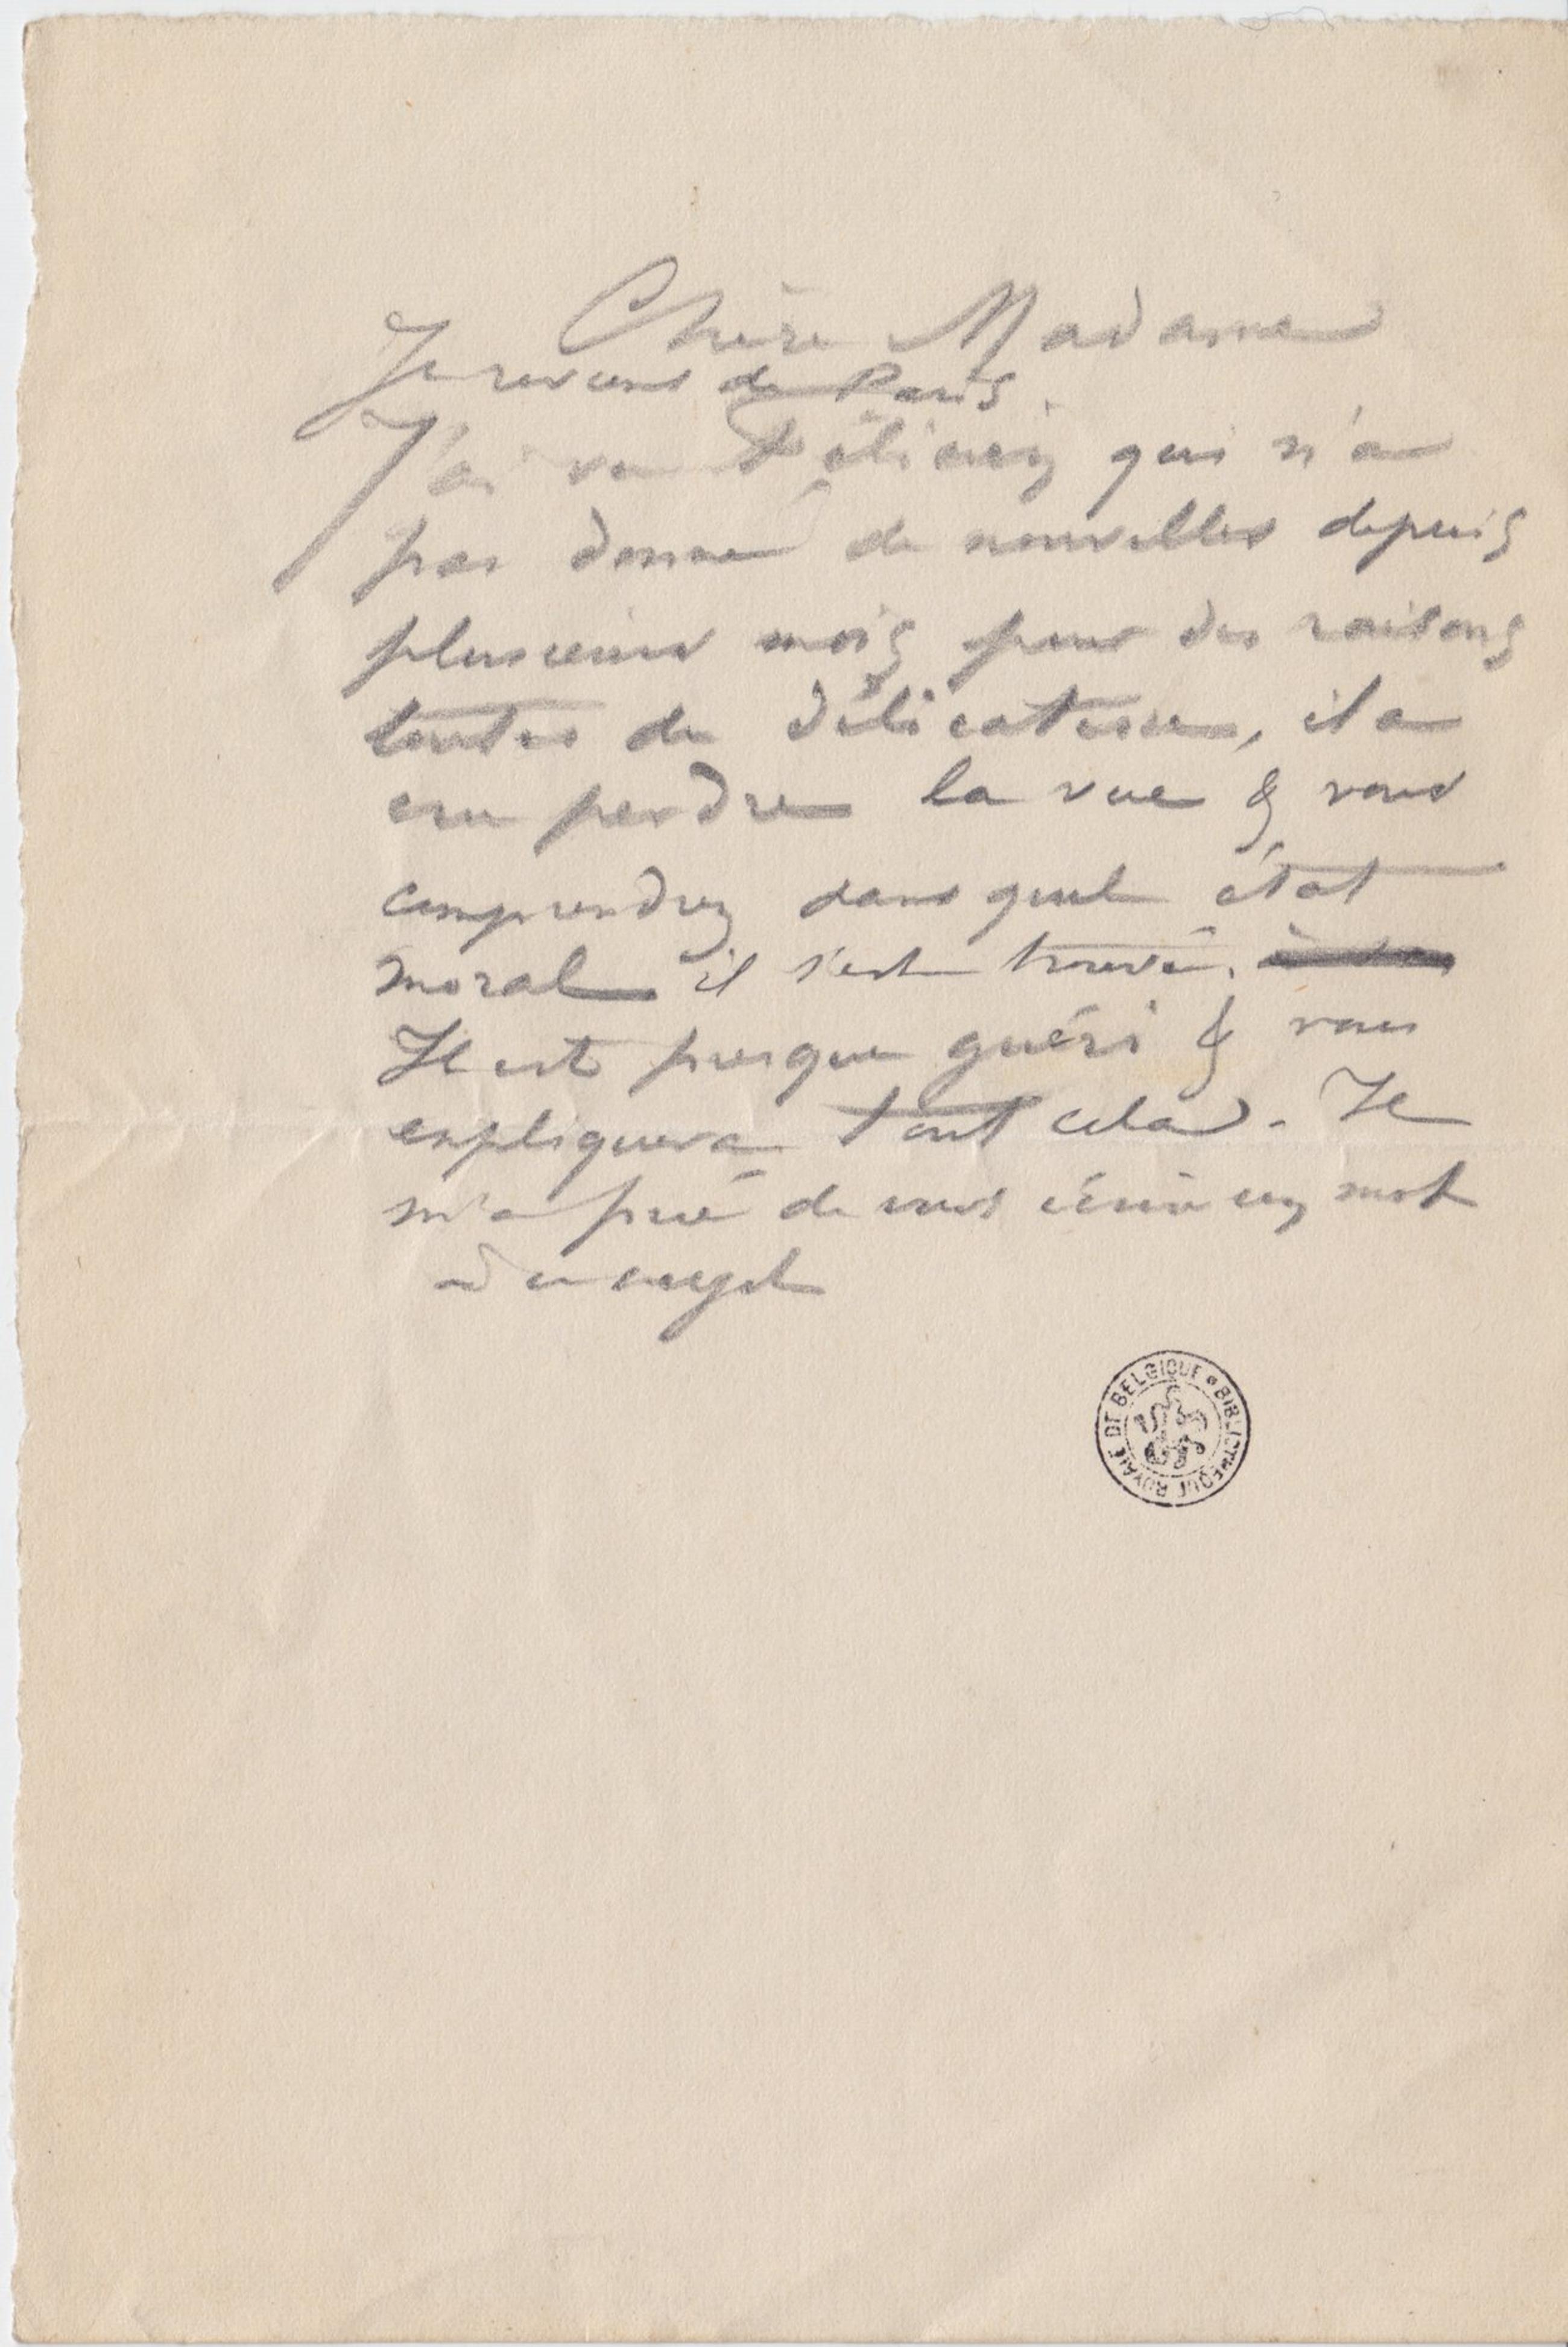 Chère Madame
Je reviens de Paris.
J'ai vu Félicien qui n'a
pas donné de nouvelles depuis
plusieurs mois pour des raisons
toutes de délicatesse, il a
cru perdre la vue & vous
comprendrez dans quel état
moral il s'est trouvé.
Il est presque guéri & vous
expliquera tout cela. Il
m'a prié de vous écrire un mot
BIBLIOTHEQUE ROYALE DE BELGIQUE